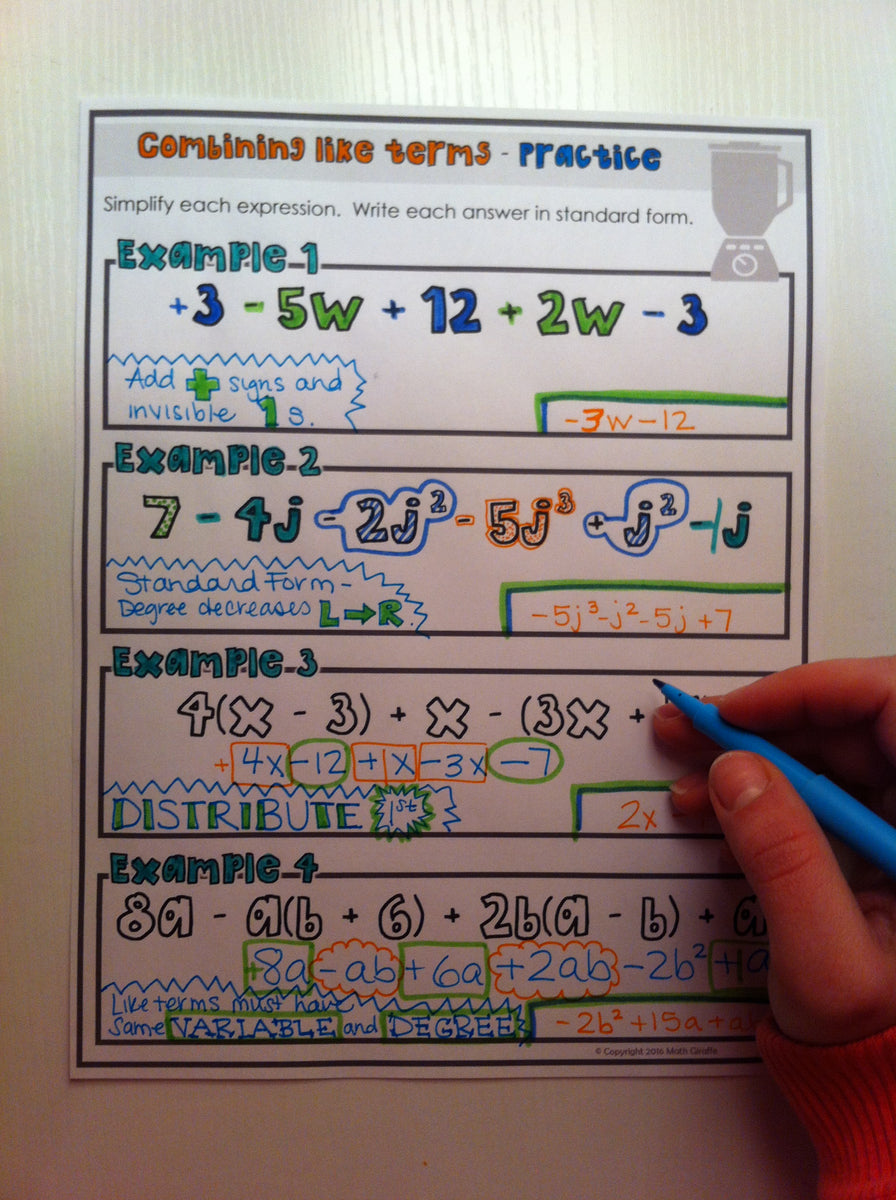 Combining like terms - Practice
Simplify each expression. Write each answer in standard form.
Example 1
+3 - 5w + 12 + 2w - 3
Add + signs and
invisible 1s.
-3w-12
Example 2
7 - 4j - 2j² - 5j³ + j² - 1j
Standard Form-
Degree decreases L→R.
-5j³-j²-5j+7
Example 3
4(x - 3) + x - (3x +
+4x-12+1x-3x-7
DISTRIBUTE 1st
2x
Example 4
8a - a(b + 6) + 2b(a - b) + a
+8a-ab+6a+2ab-2b²+1a
Like terms must have
same VARIABLE and DEGREE
-2b²+15a+a
© Copyright 2016 Math Giraffe